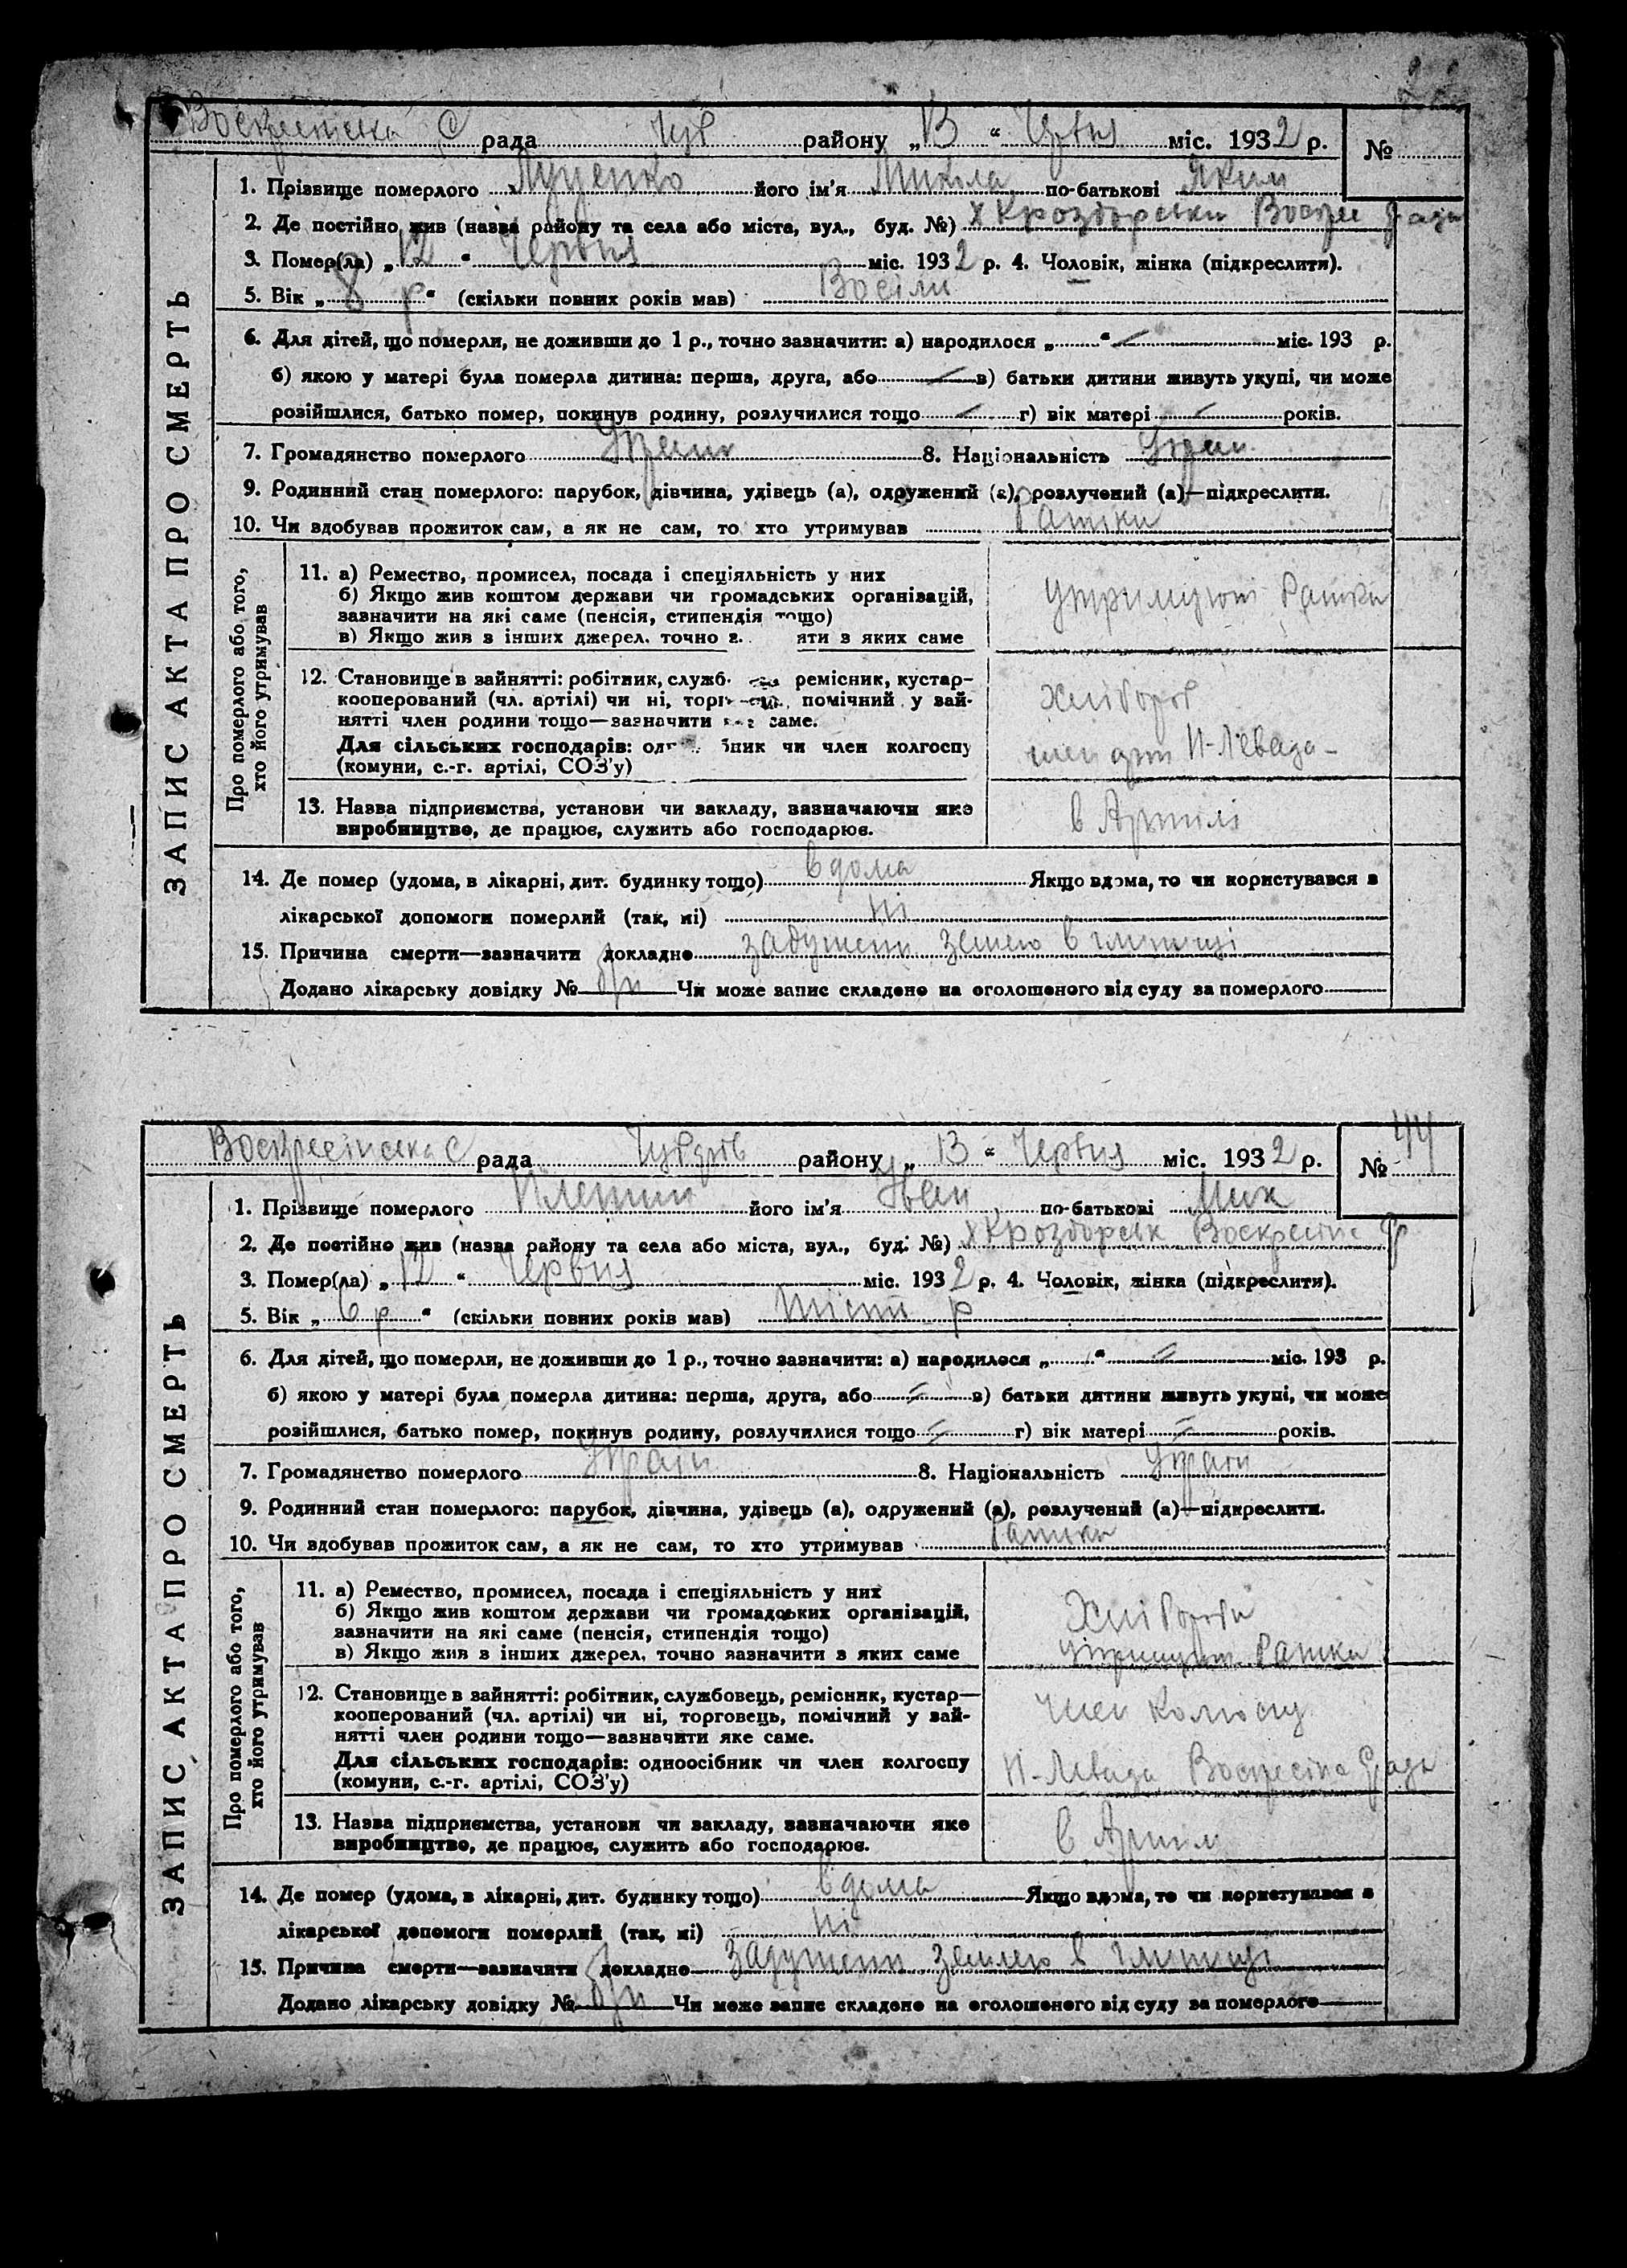 рада Чуб району „13“ Червня міс. 1932 р. №
ЗАПИС АКТА ПРО СМЕРТЬ
1. Прізвище померлого Луценко його ім'я Микола по-батькові Яким
2. Де постійно жив (назва району та села або міста, вул., буд. №)
3. Помер(ла) „12“ Червня міс. 1932 р. 4. Чоловік, жінка (підкреслити).
5. Вік „8 р“ (скільки повних років мав) Восіли
6. Для дітей, що померли, не доживши до 1 р., точно зазначити: а) народилося „ “ — міс. 193 р.
б) якою у матері була померла дитина: перша, друга, або — в) батьки дитини живуть укупі, чи може
розійшлися, батько помер, покинув родину, розлучилися тощо — г) вік матері — років.
7. Громадянство померлого 8. Національність
9. Родинний стан померлого: парубок, дівчина, удівець (а), одружений (а), розлучений (а)—підкреслити.
10. Чи здобував прожиток сам, а як не сам, то хто утримував Батьки
Про померлого або того, хто його утримував
11. а) Ремество, промисел, посада і спеціяльність у них
б) Якщо жив коштом держави чи громадських організацій,
зазначити на які саме (пенсія, стипендія тощо)
в) Якщо жив з інших джерел, точно з. яти з яких саме
Батьки
12. Становище в зайнятті: робітник, служб. ремісник, кустар-
кооперований (чл. артілі) чи ні, торг помічний у зай-
нятті член родини тощо—зазначити саме.
Для сільських господарів: од бник чи член колгоспу
(комуни, с.-г. артілі, СОЗ'у)
Хлібороб
член арт Н-Левада-
13. Назва підприємства, установи чи закладу, зазначаючи яке
виробництво, де працює, служить або господарює.
в Артілі
14. Де помер (удома, в лікарні, дит. будинку тощо) вдома Якщо вдома, то чи користувався з
лікарської допомоги померлий (так, ні) ні
15. Причина смерти—зазначити докладно задушени землею в глинищі
Додано лікарську довідку № б/н Чи може запис складено на оголошеного від суду за померлого
рада району „13“ Червня міс. 1932 р. № 44
ЗАПИС АКТА ПРО СМЕРТЬ
1. Прізвище померлого його ім'я Іван по-батькові Мик
2. Де постійно жив (назва району та села або міста, вул., буд. №)
3. Помер(ла) „12“ Червня міс. 1932 р. 4. Чоловік, жінка (підкреслити).
5. Вік „6 р“ (скільки повних років мав) Шість р
6. Для дітей, що померли, не доживши до 1 р., точно зазначити: а) народилося „ “ міс. 193 р.
б) якою у матері була померла дитина: перша, друга, або в) батьки дитини живуть укупі, чи може
розійшлися, батько помер, покинув родину, розлучилися тощо г) вік матері років.
7. Громадянство померлого Украін 8. Національність Украін
9. Родинний стан померлого: парубок, дівчина, удівець (а), одружений (а), розлучений (а)—підкреслити.
10. Чи здобував прожиток сам, а як не сам, то хто утримував Батьки
Про померлого або того, хто його утримував
11. а) Ремество, промисел, посада і спеціяльність у них
б) Якщо жив коштом держави чи громадських організацій,
зазначити на які саме (пенсія, стипендія тощо)
в) Якщо жив з інших джерел, точно зазначити з яких саме
Хлібороби
Батьки
12. Становище в зайнятті: робітник, службовець, ремісник, кустар—
кооперований (чл. артілі) чи ні, торговець, помічний у зай-
нятті член родини тощо—зазначити яке саме.
Для сільських господарів: одноосібник чи член колгоспу
(комуни, с.-г. артілі, СОЗ'у)
Член
Н-Левада
13. Назва підприємства, установи чи закладу, зазначаючи яке
виробництво, де працює, служить або господарює.
в Артіл
14. Де помер (удома, в лікарні, дит. будинку тощо) вдома Якщо вдома, то чи користувався з
лікарської допомоги померлий (так, ні) ні
15. Причина смерти—зазначити докладно задушени землею в глинищі
Додано лікарську довідку № б/н Чи може запис складено на оголошеного від суду за померлого